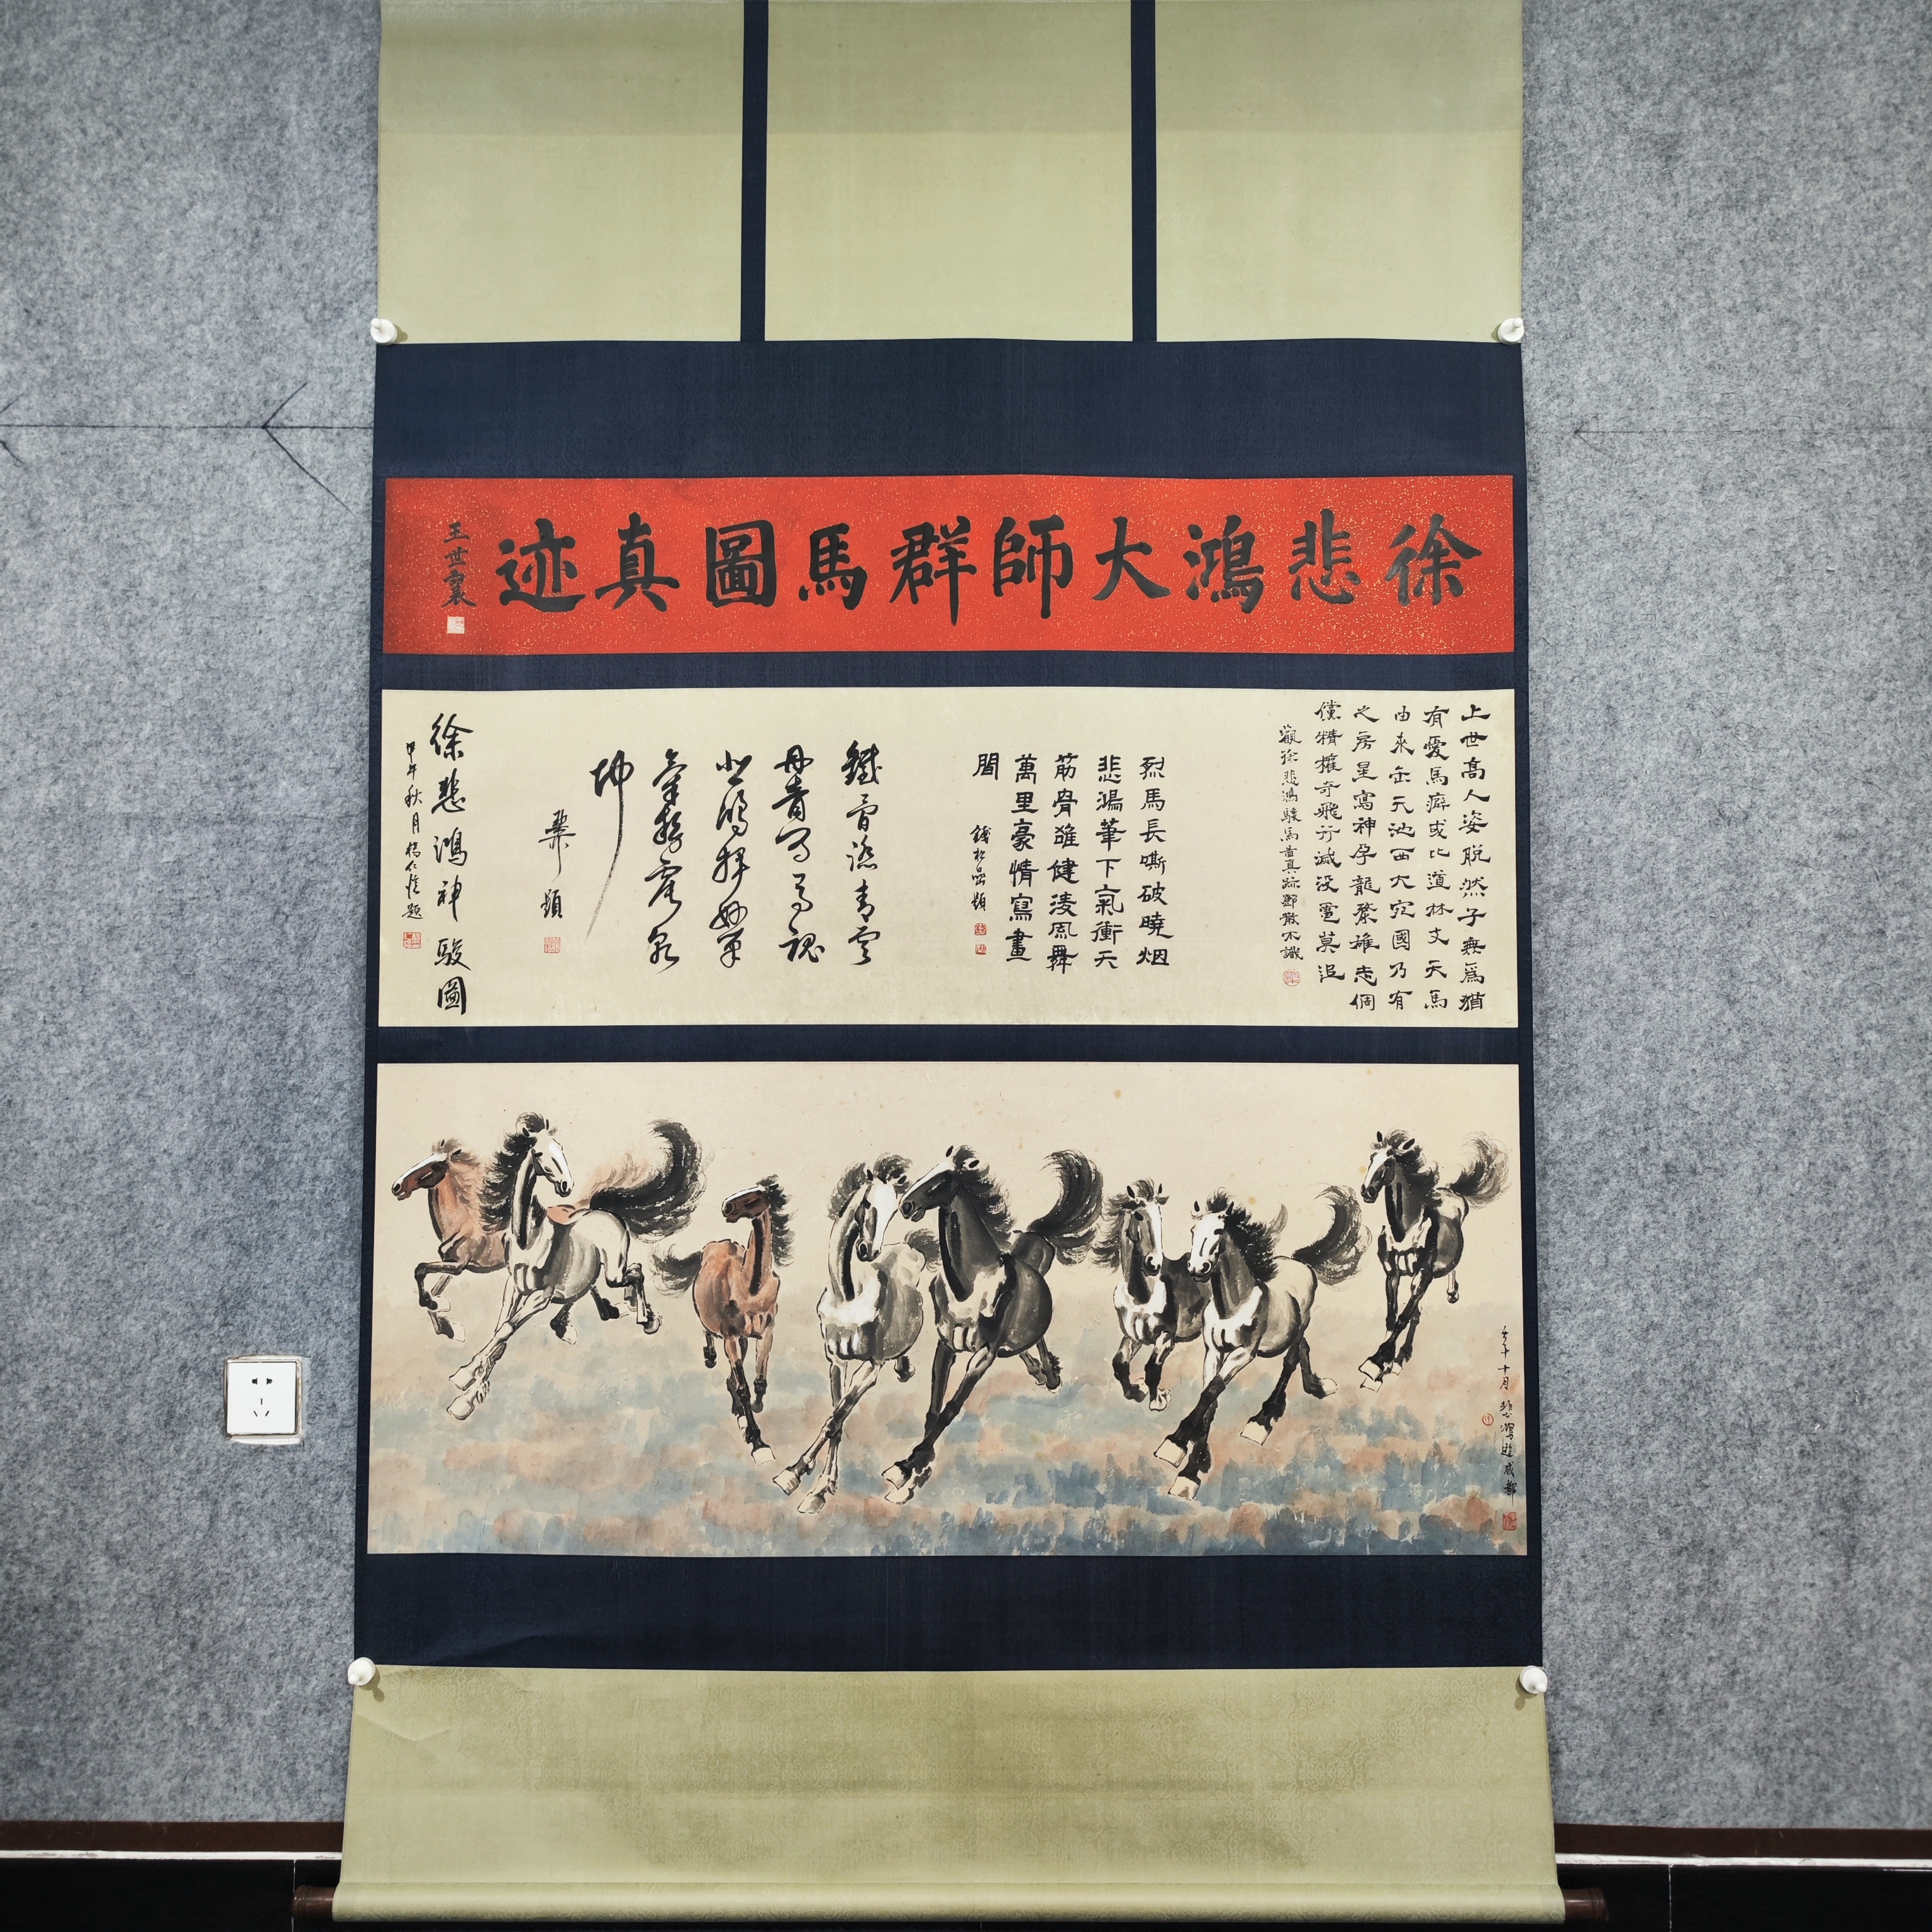 徐悲鴻大師群馬圖真迹
王世襄
上世高人姿脱然子無爲猶
有愛馬癖或比道林支天馬
由來出天池西大宛國乃有
之房星寫神孕龍發雄志倜
儻精權奇飛行滅没電莫追
觀徐悲鴻駿馬畫真跡鄧散木識
烈馬長嘶破曉烟
悲鴻筆下氣衝天
筋骨雄健淩風舞
萬里豪情寫畫
間
錢松嵒題
鐵骨凌青雲
丹青寫馬魂
悲鴻揮妙筆
氣勢震乾
坤
題
徐悲鴻神駿圖
甲午秋月楊仁愷題
壬午十月悲鴻遊成都